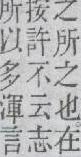 之所之也在
按許不云志
所以多渾言